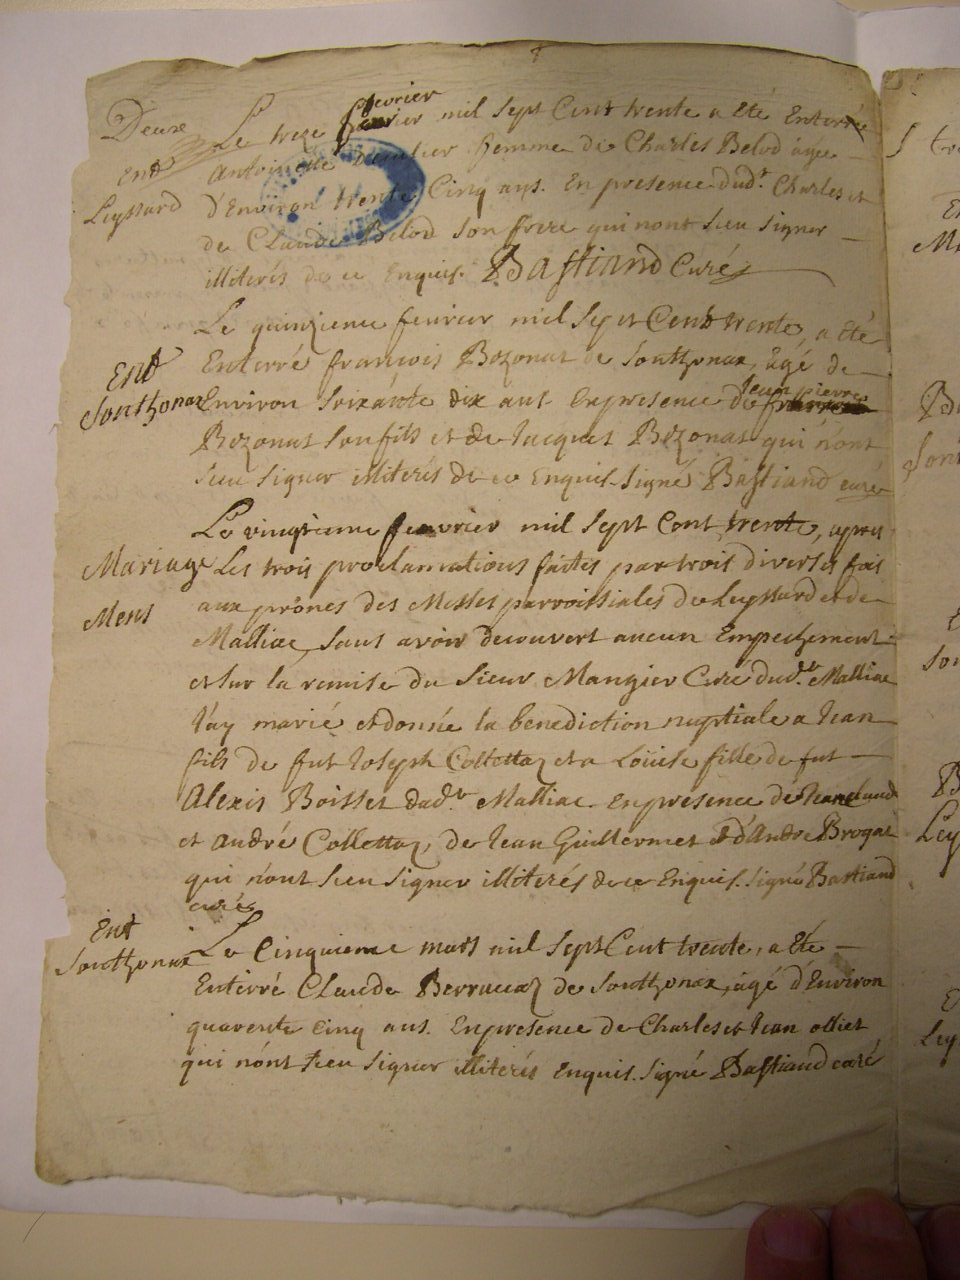 Deuxe
Le treze fevrier mil sept Cent trente a eté Enterrée
Ent
Antoinette femme de Charles Belod agee
Leyssard
d'Environ trente Cinq ans. En presence dud.t Charles et
de Claude Belod son frere qui n'ont sceu signer
illiterés de ce Enquis. Bastiand Curé
Le quinzieme fevrier mil sept Cent trente, a eté
Ent
Enterré francois Bozonat de Sonthonax, agé de
Sonthonax
Environ soixante dix ans En presence de jean pierre
Bozonat son fils et de Jacques Bozonat qui n'ont
sceu signer illiterés de ce Enquis. signé Bastiand curé
Le vingtieme fevrier mil sept Cent trente, apres
Mariage
Les trois proclamations faites par trois diverses fois
aux prônes des Messes parroissiales de Leyssard et de
Mens
Malliac, sans avoir decouvert aucun Empechement
et sur la remise du sieur Mangier Curé dud.t Malliac
j'ay marié et donné la benediction nuptiale a Jean
fils de fut Joseph Collettaz et a Loüise fille de fut
Alexis Boisset dud.t Malliac. En presence de Jean claude
et André Collettaz, de Jean Guillermet et d'André Brogat
qui n'ont sceu signer illiterés de ce Enquis. signé Bastiand
curé
Ent
Le Cinquieme mars mil sept Cent trente, a eté
Sonthonax
Enterré Claude Berrucaz de Sonthonax, agé d'Environ
quarente cinq ans. En presence de Charles et Jean ollier
qui n'ont sceu signer illiterés Enquis. signé Bastiand curé